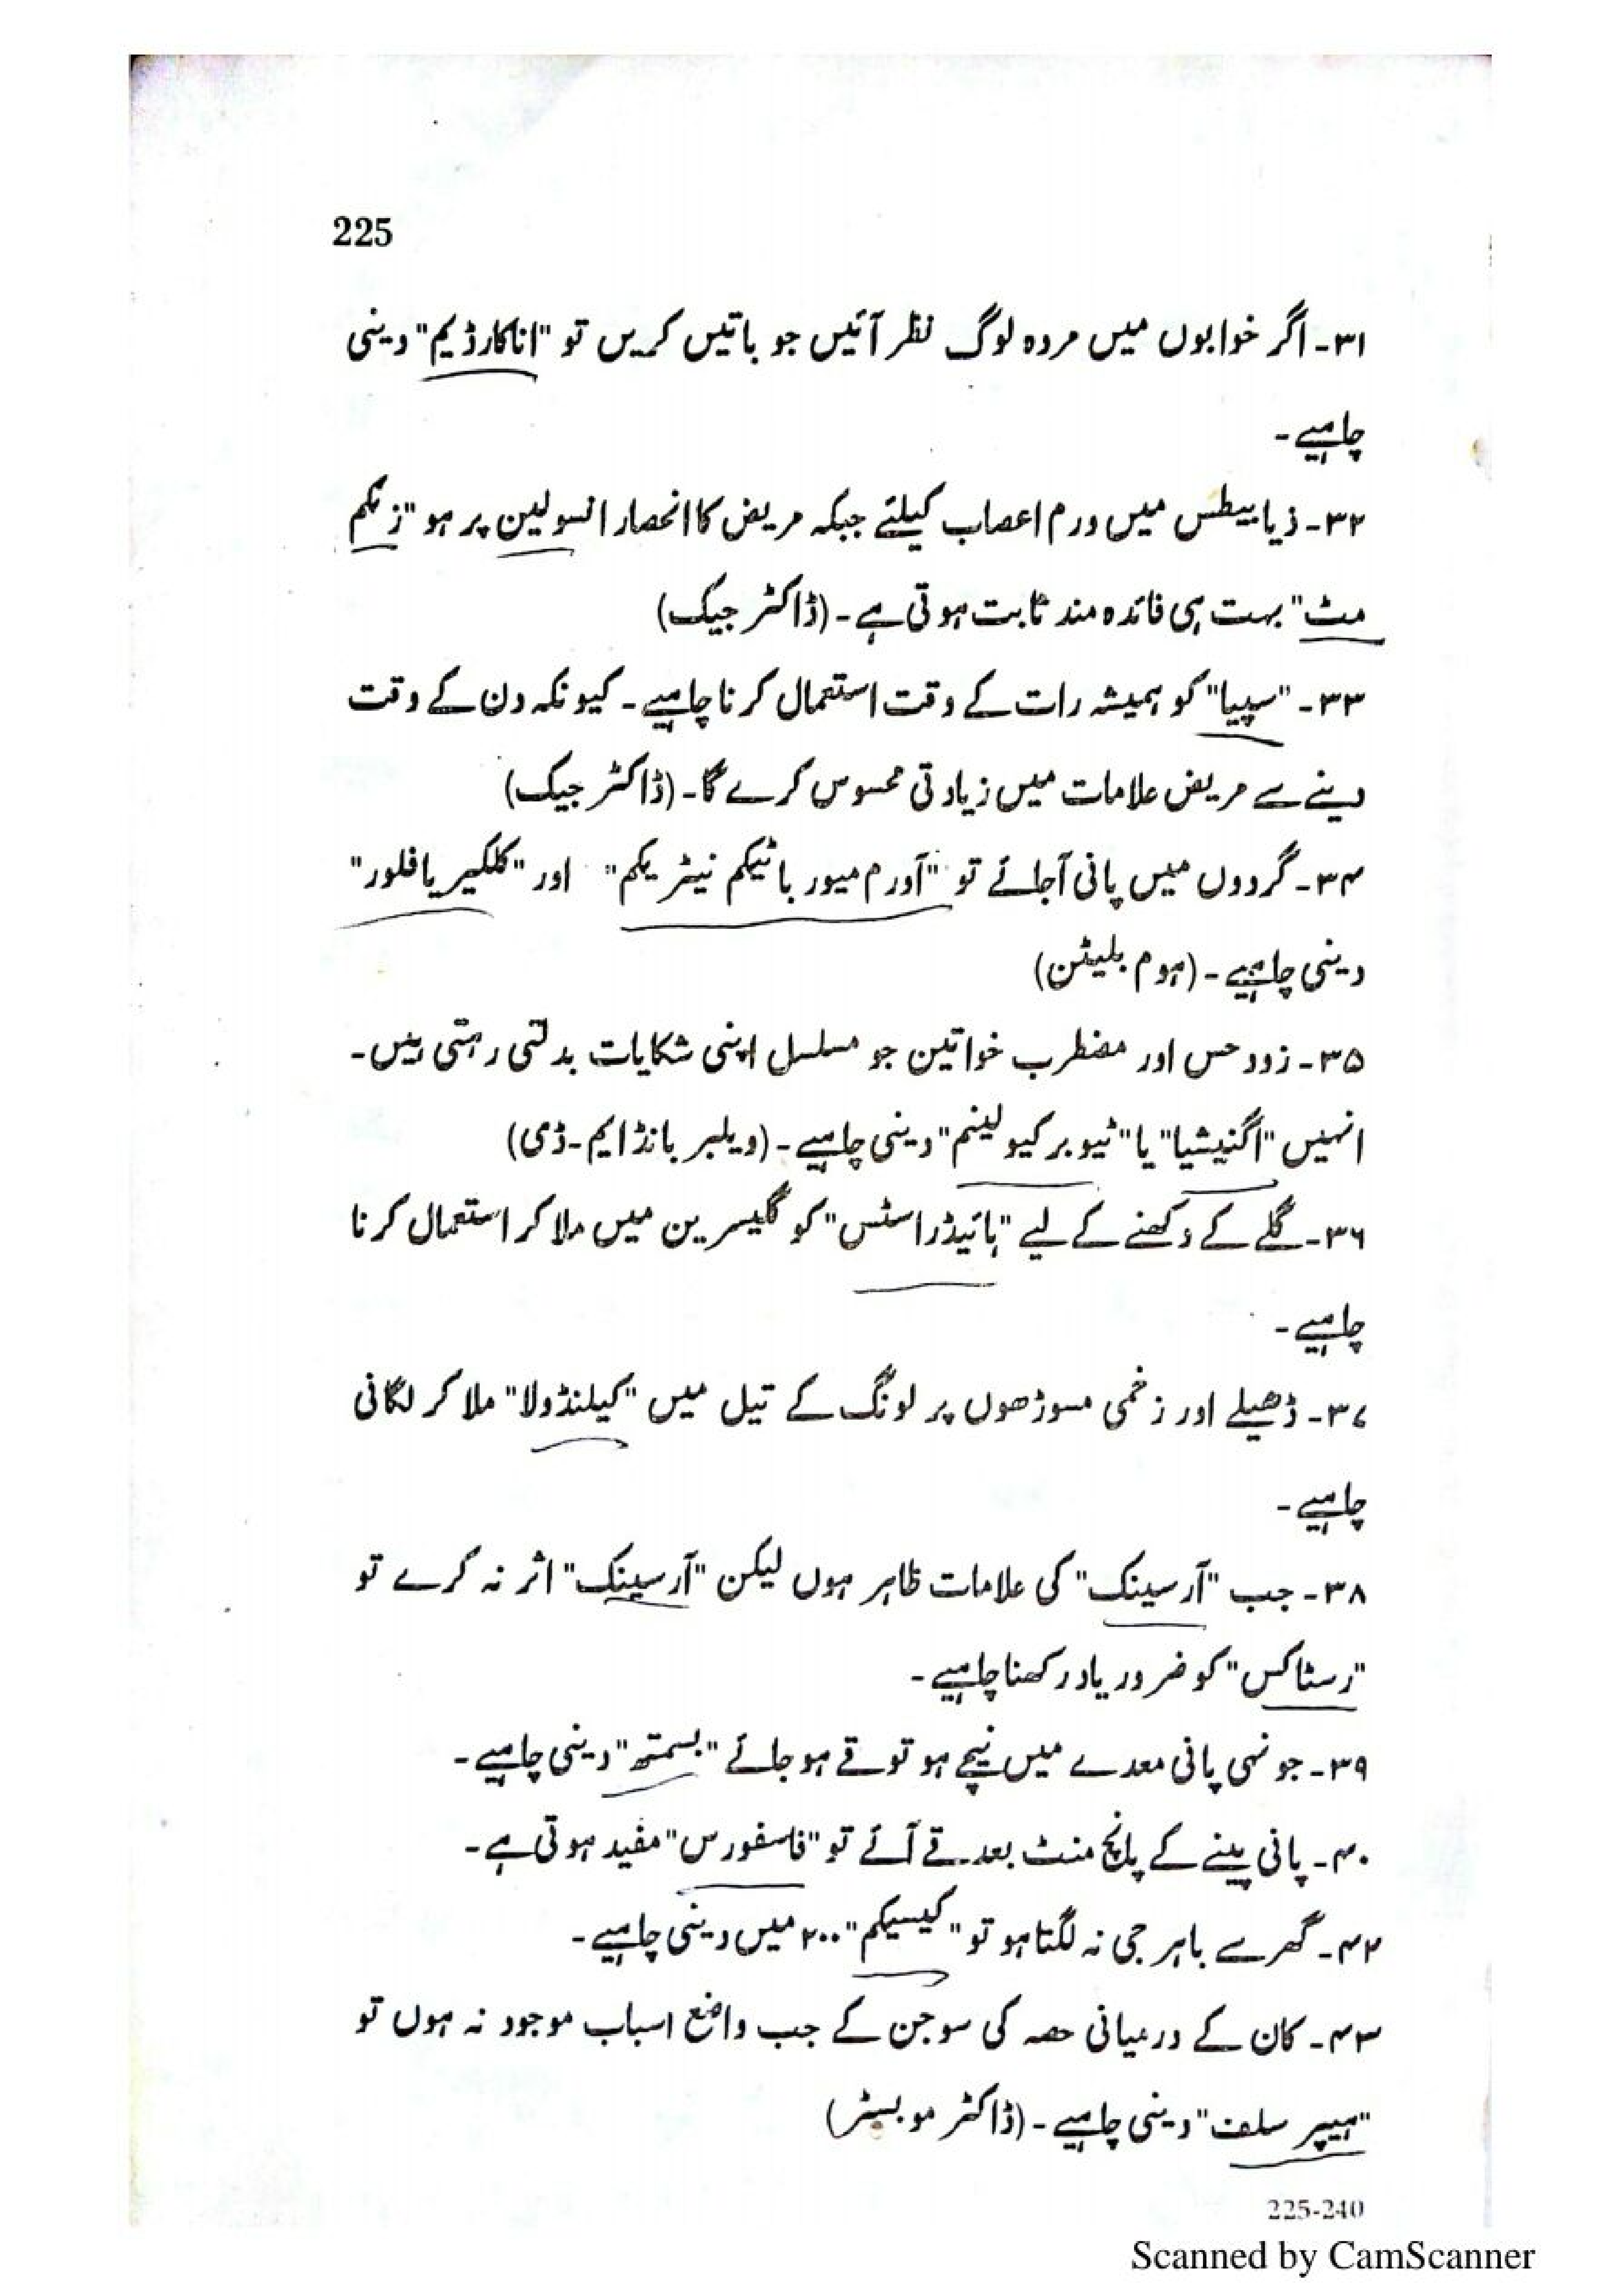 225
۳۱۔ اگر خوابوں میں مردہ لوگ نظر آئیں جو باتیں کریں تو "اناکارڈیم" دینی
چاہیے۔
۳۲۔ ذیابیطس میں ورم اعصاب کیلئے جبکہ مریض کا انحصار انسولین پر ہو "زنکم
مٹ" بہت ہی فائدہ مند ثابت ہوتی ہے۔ (ڈاکٹر جیک)
۳۳۔ "سیپیا" کو ہمیشہ رات کے وقت استعمال کرنا چاہیے۔ کیونکہ دن کے وقت
دینے سے مریض علامات میں زیادتی محسوس کرے گا۔ (ڈاکٹر جیک)
۳۴۔ گردوں میں پانی آجائے تو "آورم میور باٹیکم نیٹریکم" اور "کلکیریا فلور"
دینی چاہیے۔ (ہوم بلیٹن)
۳۵۔ زود حس اور مضطرب خواتین جو مسلسل اپنی شکایات بدلتی رہتی ہیں۔
انہیں "اگنیشیا" یا "ٹیوبرکیولینم" دینی چاہیے۔ (ویلبر بانڈ ایم۔ڈی)
۳۶۔ گلے کے دکھنے کے لیے "ہائیڈراسٹس" کو گلیسرین میں ملا کر استعمال کرنا
چاہیے۔
۳۷۔ ڈھیلے اور زخمی مسوڑھوں پر لونگ کے تیل میں "کیلنڈولا" ملا کر لگانی
چاہیے۔
۳۸۔ جب "آرسینک" کی علامات ظاہر ہوں لیکن "آرسینک" اثر نہ کرے تو
"رسٹاکس" کو ضرور یاد رکھنا چاہیے۔
۳۹۔ جونہی پانی معدے میں نیچے ہو تو قے ہو جائے "بسمتھ" دینی چاہیے۔
۴۰۔ پانی پینے کے پانچ منٹ بعد قے آئے تو "فاسفورس" مفید ہوتی ہے۔
۴۲۔ گھر سے باہر جی نہ لگتا ہو تو "کیسیکم" ۲۰۰ میں دینی چاہیے۔
۴۳۔ کان کے درمیانی حصہ کی سوجن کے جب واضع اسباب موجود نہ ہوں تو
"ہیپر سلف" دینی چاہیے۔ (ڈاکٹر موبسٹر)
225-240
Scanned by CamScanner